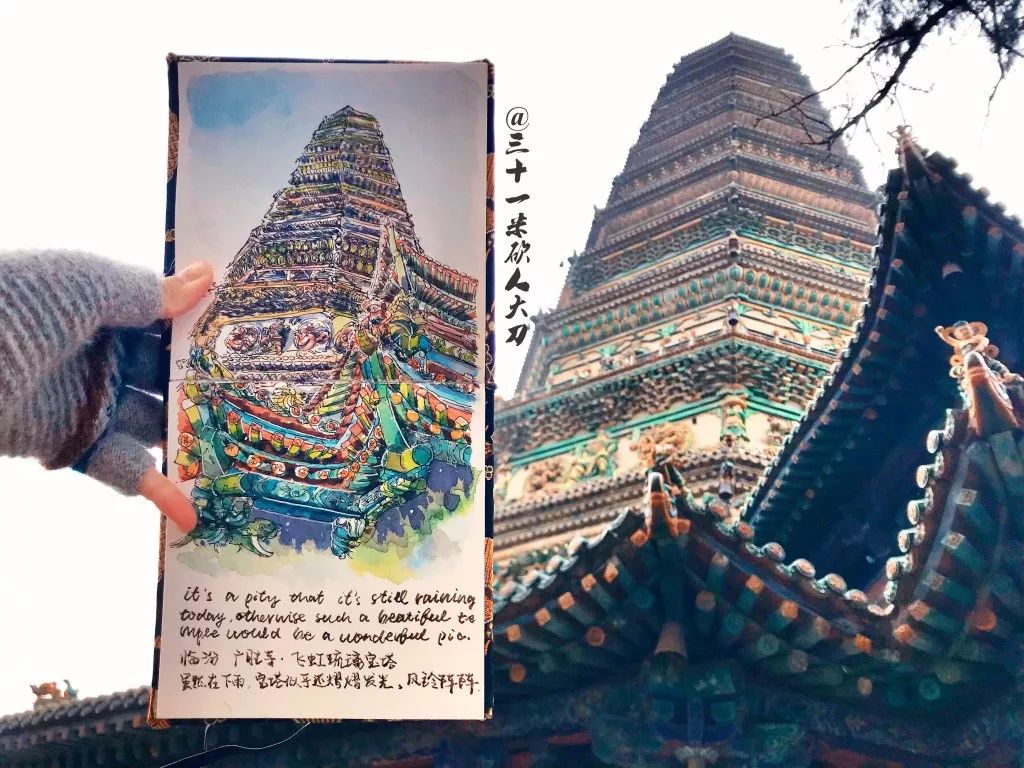 @三十一米砍人大刀
it's a pity that it's still raining
today, otherwise such a beatiful te
mple would be a wonderful pic.
临汾 广胜寺·飞虹琉璃宝塔
虽然在下雨,宝塔似乎还熠熠发光、风铃阵阵.